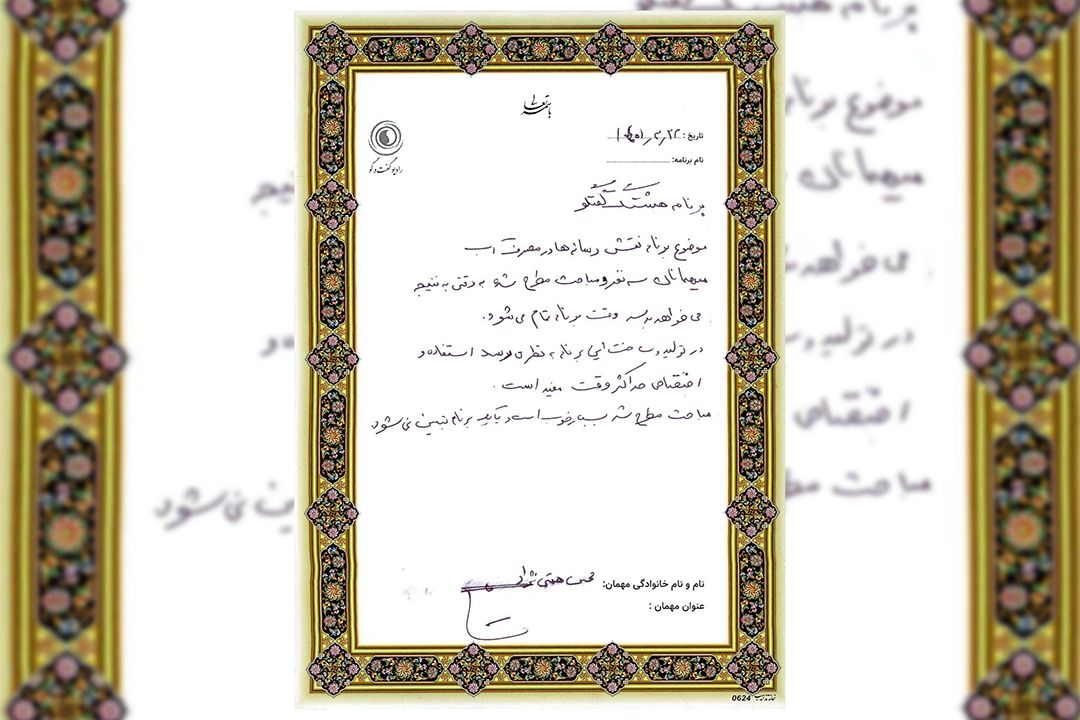 باسمه تعالی
رادیو گفت و گو
تاریخ: ۱۴۰۱٫۳٫۲۲
نام برنامه:
برنامه هشتگ گفتگو
موضوع برنامه نقش رسانه ها در مصرف آب
میهمانان سه نفر و مباحث مطرح شد به وقتی به نتیجه
می خواهد برسد وقت برنامه تمام می شود.
در تولید و ساخت این برنامه به نظر می رسد استفاده و
اختصاص حداکثر وقت مفید است.
مباحث مطرح شده بسیار خوب است و برنامه تبیین می شود
نام و نام خانوادگی مهمان: محسن
عنوان مهمان:
0624